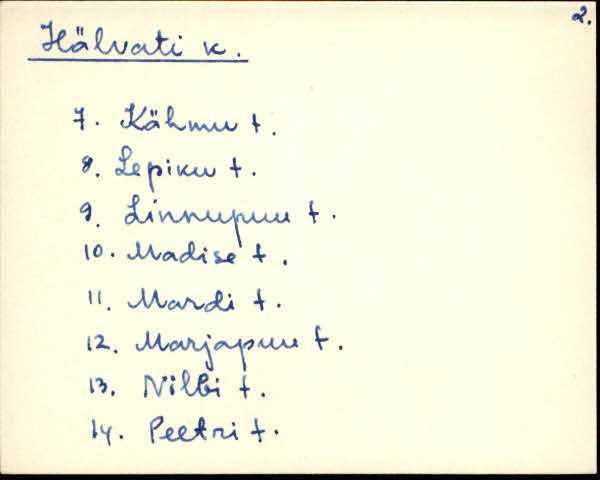 2.
Hälvati k.
7. Kähmu t.
8. Lepiku t.
9. Linnupuu t.
10. Madise t.
11. Mardi t.
12. Marjapuu t.
13. Nilbi t.
14. Peetri t.